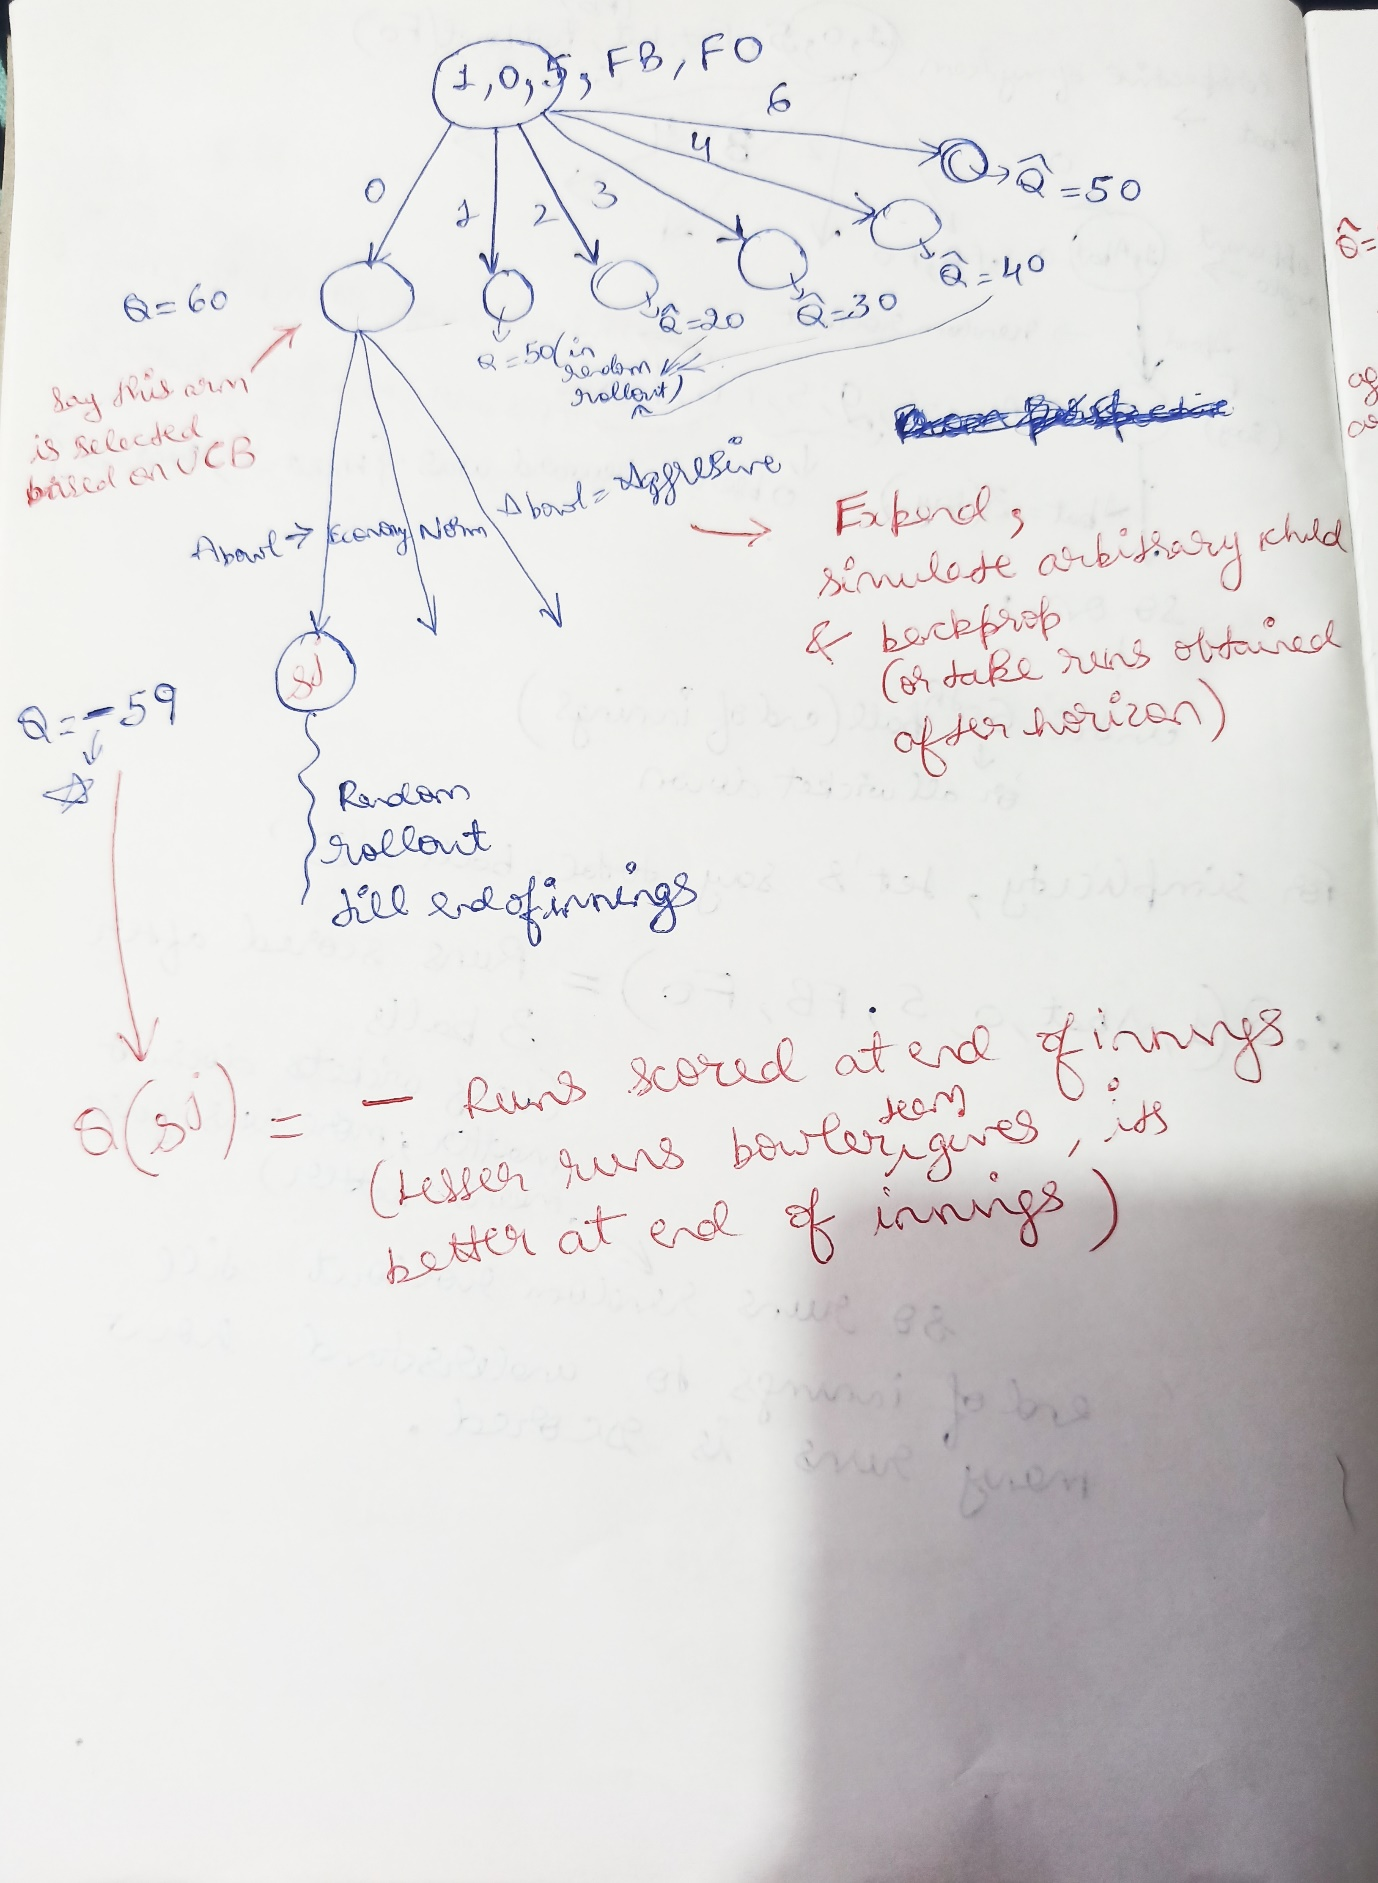 1,0,5, FB, FO
6
4
3
2
1
0
Q̂ = 50
Q̂ = 40
Q̂ = 30
Q̂ = 20
Q = 60
Q = 50 (in
random
rollout)
Say this arm
is selected
based on UCB
Abowl → Economy Norm Abowl = Aggresive
Expand,
simulate arbitrary child
& backprop
(or take runs obtained
after horizon)
sj
Q = -59
Random
rollout
till end of innings
Q(sj) = - Runs scored at end of innings
(Lesser runs bowler team gives, its
better at end of innings)
Q̂ =